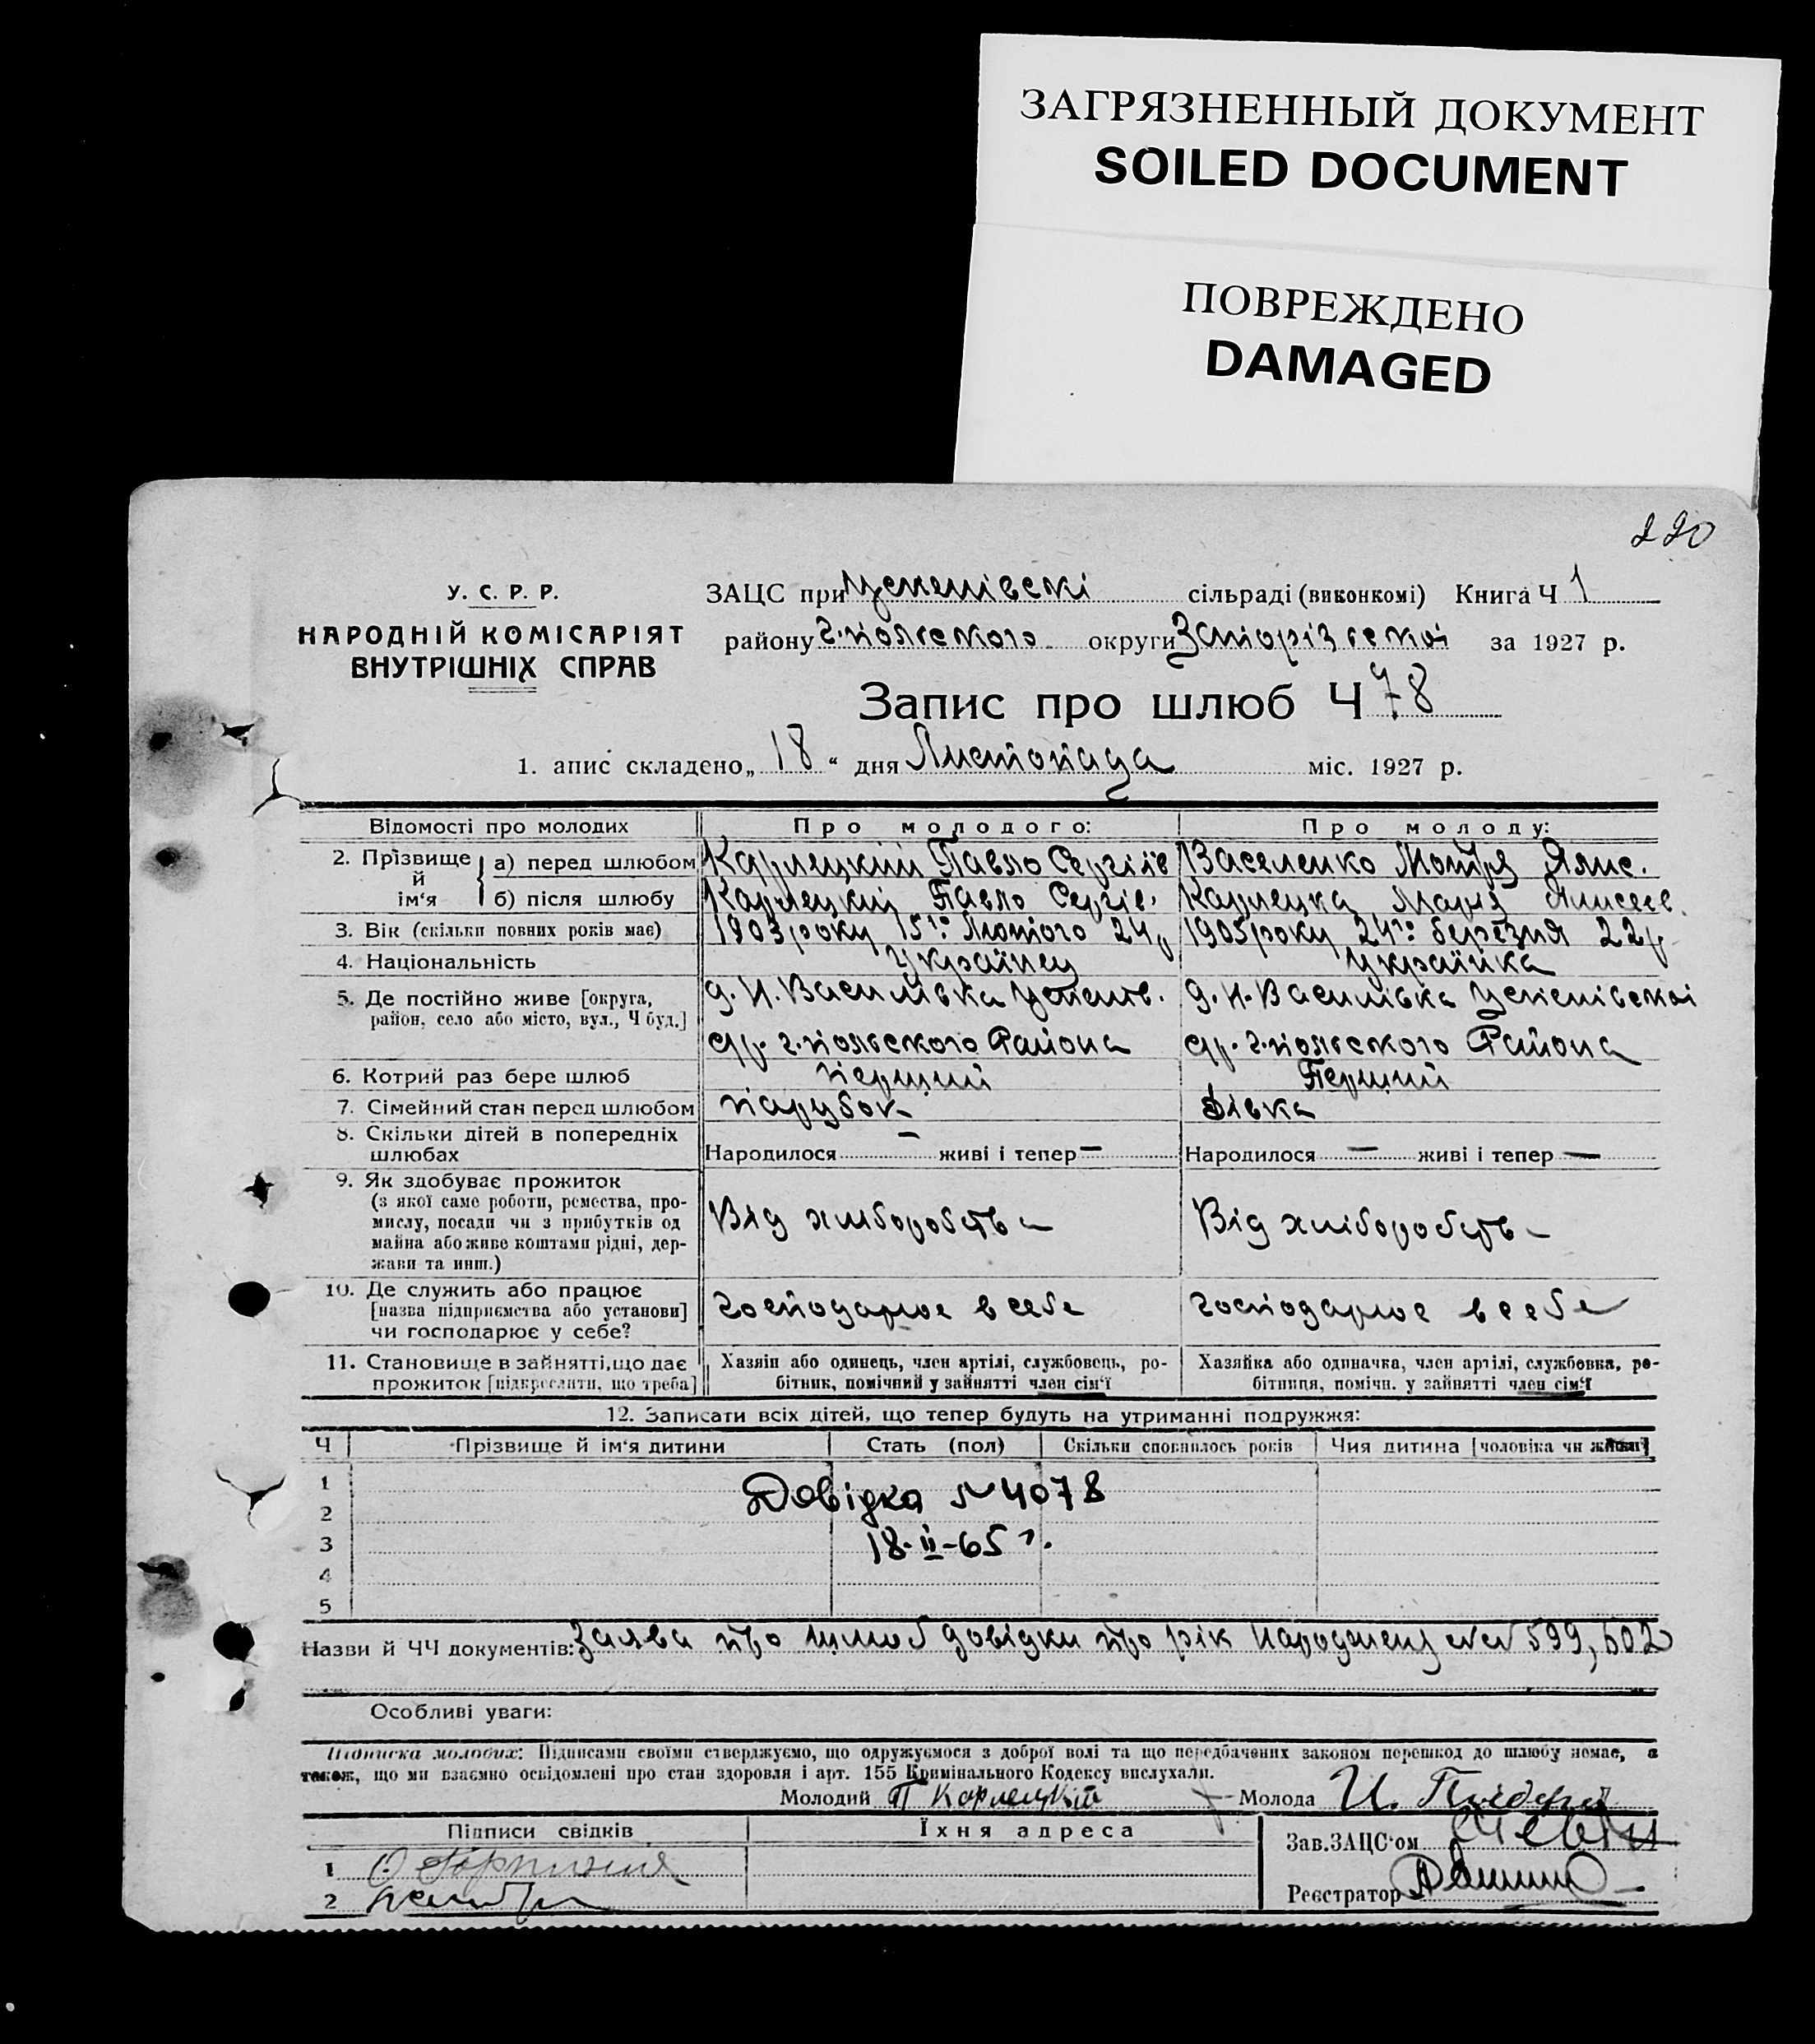 ЗАГРЯЗНЕННЫЙ ДОКУМЕНТ
SOILED DOCUMENT
ПОВРЕЖДЕНО
DAMAGED
220
У. С. Р. Р.
НАРОДНІЙ КОМІСАРІЯТ
ВНУТРІШНІХ СПРАВ
ЗАЦС при Успенівскі сільраді (виконкомі) Книга Ч 1
району г.польского округи Запорізськоі за 1927 р.
Запис про шлюб Ч 78
1. апис складено „ 18 “ дня Листопада міс. 1927 р.
Відомості про молодих Про молодого: Про молоду:
2. Прізвище й ім‘я а) перед шлюбом Карлецкий Павло Сергіів Василенко Мотря
б) після шлюбу Карлецкий Павло Сергів. Карлецка
3. Вік (скільки повних років має) 1903 року 15го Лютого 24р 1905 року 24го березня 22р
4. Національність Українец Українка
5. Де постійно живе [округа, район, село або місто, вул., Ч буд.] д. Н. Василівка Успенів. с/р. г.польского Района д. Н. Василівка Успенівскоі с/р. г.польского Района
6. Котрий раз бере шлюб перщий Перщий
7. Сімейний стан перед шлюбом парубок дівка
8. Скільки дітей в попередніх шлюбах Народилося — живі і тепер — Народилося — живі і тепер —
9. Як здобуває прожиток
(з якої саме роботи, ремества, про-
мислу, посади чи з прибутків од
майна або живе коштами рідні, дер-
жави та инш.) Від хліборобства Від хліборобства
10. Де служить або працює
[назва підприємства або установи]
чи господарює у себе? господарює в себе господарює в себе
11. Становище в зайнятті, що дає
прожиток [підкреслити, що треба] Хазяїн або одинець, член артілі, службовець, ро-
бітник, помічний у зайнятті член сім‘ї Хазяйка або одиначка, член артілі, службовка, ро-
бітниця, помічн. у зайнятті член сім‘ї
12. Записати всіх дітей, що тепер будуть на утриманні подружжя:
Ч Прізвище й ім‘я дитини Стать (пол) Скільки сповнилось років Чия дитина [чоловіка чи жінки]
1
Довідка № 4078
2
3 18-ІІ-65 г.
4
5
Назви й ЧЧ документів: Заява про щлюб довідки про рік народженя №№ 599, 602
Особливі уваги:
Підписка молодих: Підписами своїми стверджуємо, що одружуємося з доброї волі та що передбачених законом перешкод до шлюбу немає, а
також, що ми взаємно освідомлені про стан здоровля і арт. 155 Кримінального Кодексу вислухали.
Молодий П Карлецкій Молода
Підписи свідків Їхня адреса Зав.ЗАЦС‘ом
1
2 Реєстратор